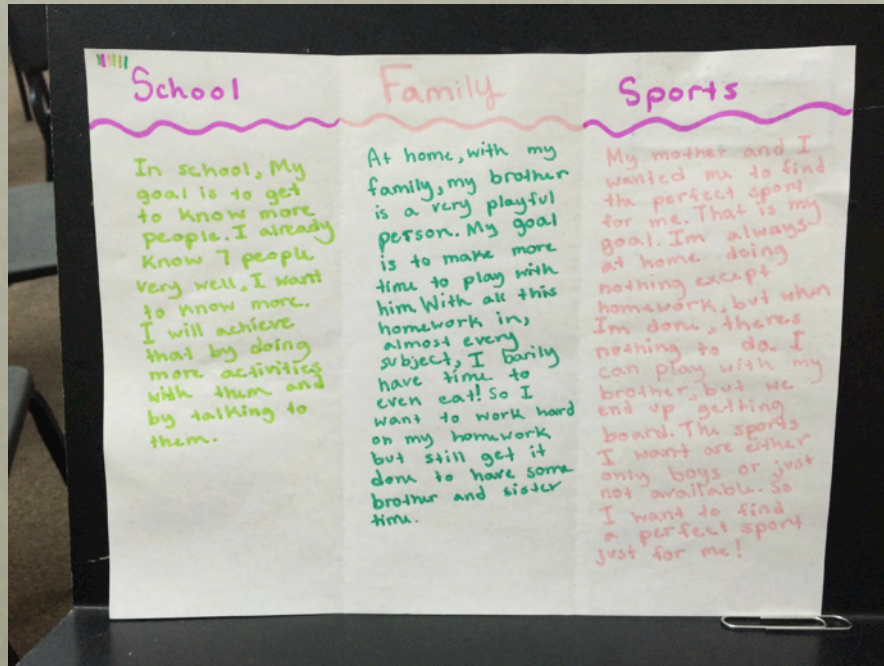 School
In school, My
goal is to get
to know more
people. I already
know 7 people
very well, I want
to know more.
I will achieve
that by doing
more activities
with them and
by talking to
them.
Family
At home, with my
family, my brother
is a very playful
person. My goal
is to make more
time to play with
him. With all this
homework in,
almost every
subject, I barily
have time to
even eat! So I
want to work hard
on my homework
but still get it
done to have some
brother and sister
time.
Sports
My mother and I
wanted me to find
the perfect sport
for me. That is my
goal. Im always
at home doing
nothing except
homework, but when
Im done, theres
nothing to do. I
can play with my
brother, but we
end up getting
board. The sports
I want are either
only boys or just
not available. So
I want to find
a perfect sport
just for me!